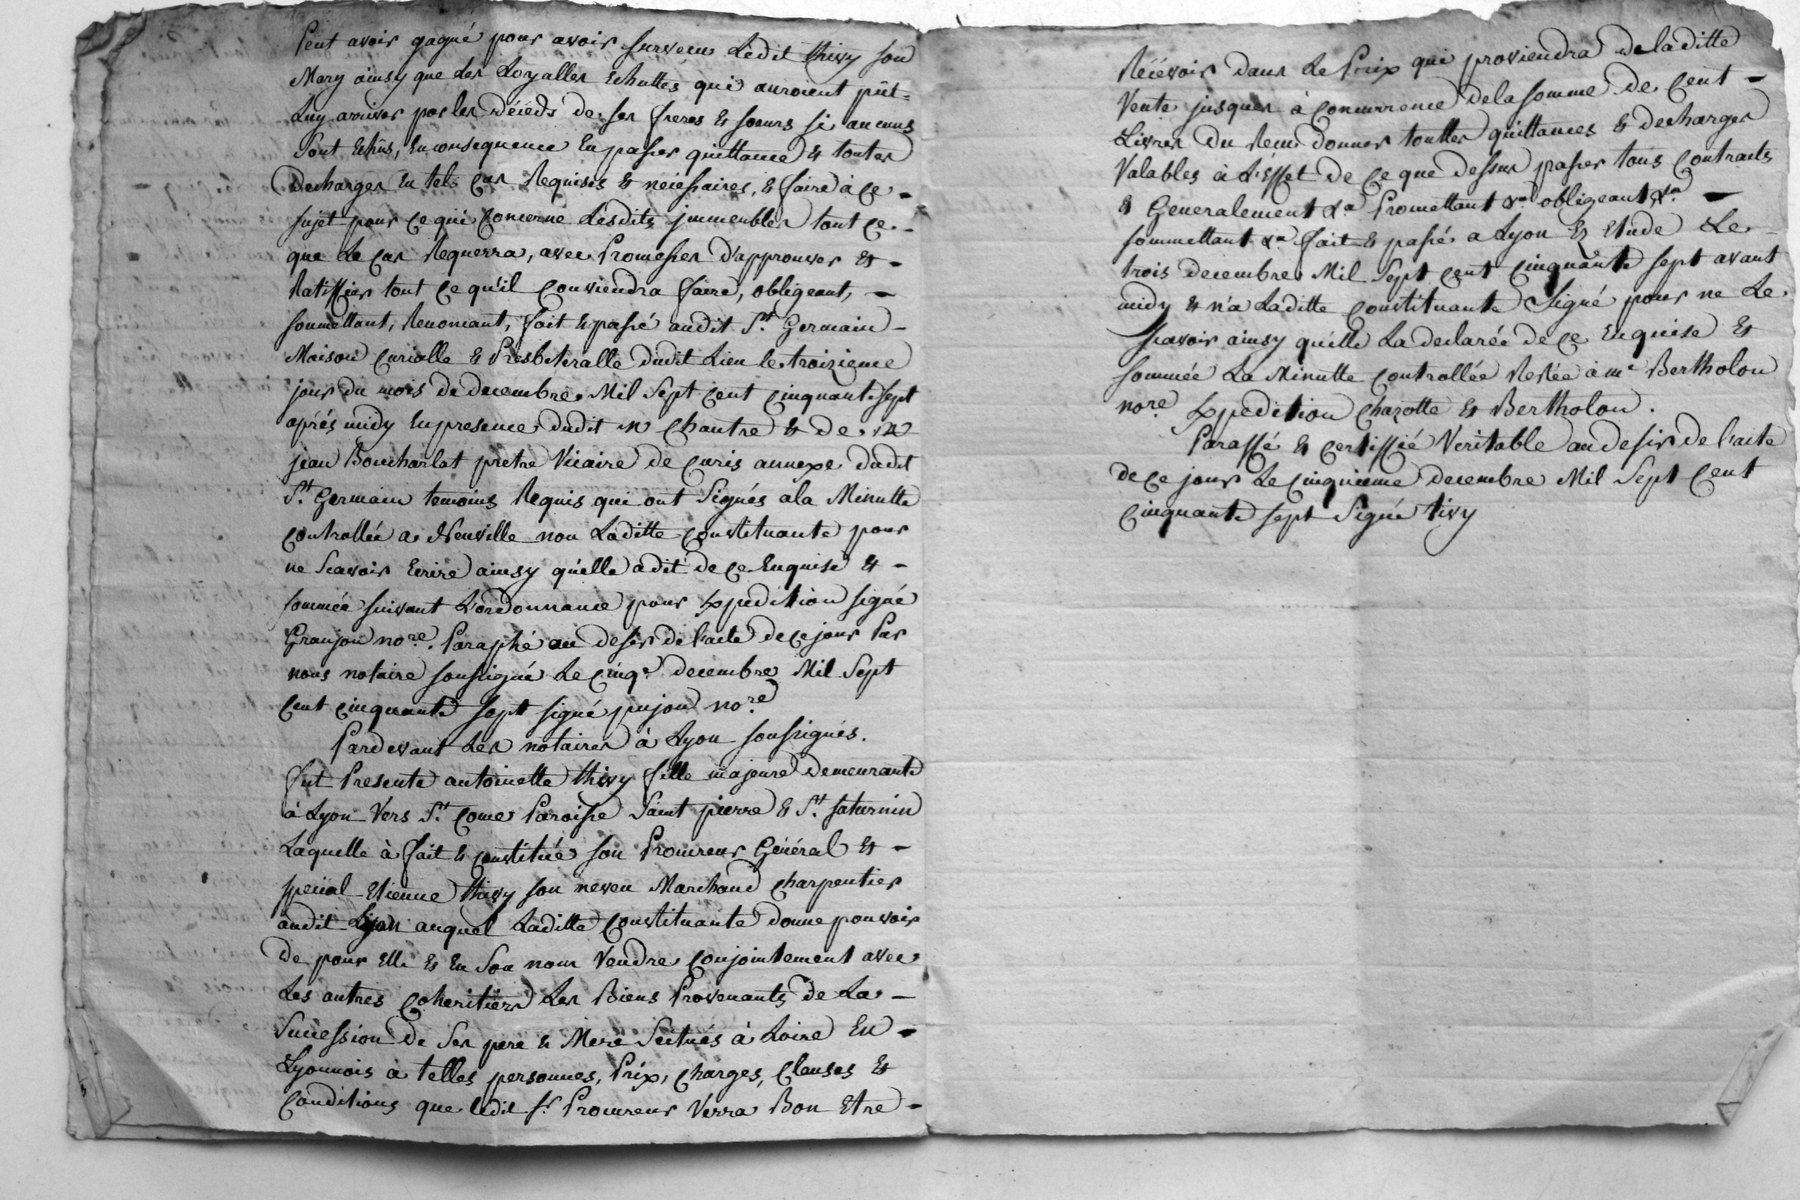 Peut avoir gagné pour avoir survecu Ledit thivy son
Mary ainsy que Les Loyalles Echuttes qui auroient pût
Luy arriver par les décéds de ses freres & soeurs si aucuns
sont Echûs, En consequence En passer quittance & toutes
Decharges En tels cas Requises & necessaires, & faire à ce
sujet pour ce qui concerne Lesdits jmmeubles tout ce
que Le cas Requerra, avec Promesses D'approuver Et
Ratiffier tout ce qu'il conviendra faire, obligeant,
soumettant, Renoncant, fait & passé audit St. Germain
Maison curialle & Presbiteralle dudit Lieu le troizieme
jour du mois de decembre Mil Sept Cent Cinquante Sept
aprés midy En presence dudit Chantre & de
jean Boucharlat pretre Vicaire de Curis annexe dudit
St. Germain temoins Requis qui ont Signés a la Minutte
controllée a Neuville non Laditte constituante pour
ne Scavoir Ecrire ainsy qu'elle a dit de ce Enquise Et
sommée suivant L'ordonnance pour Expedition signé
Granjon nore. Paraphé au desir de l'acte de ce jour Par
nous notaire soussigné Le cinqe. decembre Mil Sept
Cent cinquante sept signé pujon nore
Pardevant Les notaires à Lyon soussignés.
fut Presente antoinette thivy fille majeure Demeurante
à Lyon Vers St. Come Paroisse Saint pierre & St. saturnin
Laquelle à fait & constitué son Procureur Général Et
special Etienne thivy son neveu Marchand charpentier
audit Lyon auquel Laditte Constituante donne pouvoir
de pour Elle & En Son nom Vendre conjointement avec
Les autres Coheritiers Les Biens Provenants de La
Succession de Ses pere & Mere Scitués à Loire En
Lyonnois a telles personnes, Prix, charges, clauses Et
Conditions que ledit sr. Procureur Verra Bon Etre
Recevoir dans Le Prix qui proviendra de laditte
Vente jusques à concurrence de la somme de cent
Livres Du Recu donner touttes quittances & decharges
Valables à L'Effet de ce que dessus passer tous contracts
& Generalement &a Promettant &a obligeant &a.
sommettant &a fait & passé a Lyon Es Etude Le
trois decembre Mil Sept cent cinquante sept avant
midy & n'a Laditte constituante Signé pour ne Le
scavoir ainsy qu'elle La declaré de ce Enquise Et
sommée La Minutte controllée Restée à me Bertholon
nore Expedition Chazotte Et Bertholon.
Paraffé & certiffié Veritable au desir de l'acte
de ce jour Le cinquieme decembre Mil Sept Cent
Cinquante sept Signé tivy